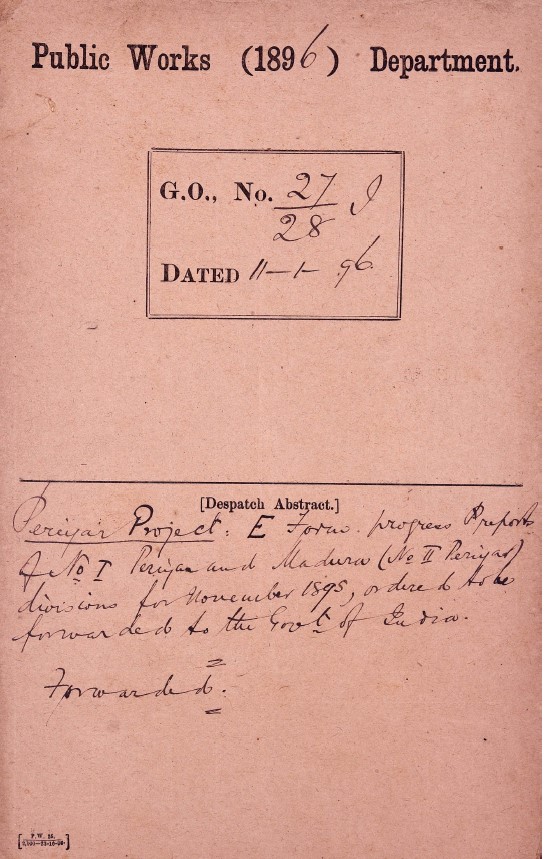 Public Works (1896) Department.
G.O., No. 27 I
28
DATED 11-1-96
[Despatch Abstract.]
Periyar Project: E Form progress reports
of No I Periyar and Madura (No II Periyar)
divisions for November 1895, ordered to be
forwarded to the Govt of India.
Forwarded.
P.W.